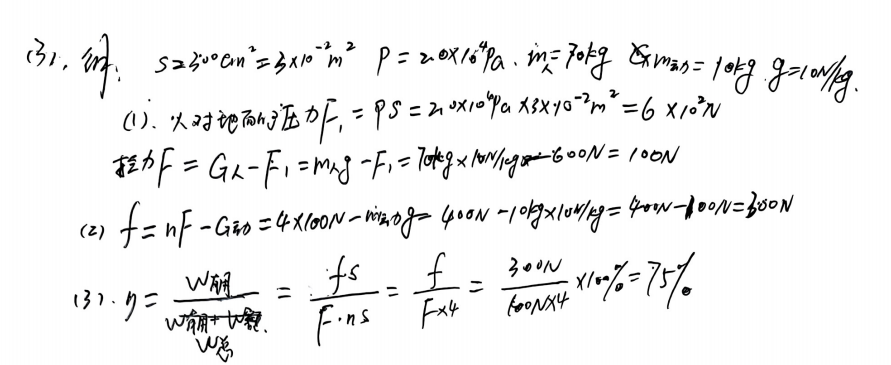 (3). 解: S=300cm²=3×10⁻²m² P=2.0×10⁴Pa. m人=70kg m动=10kg g=10N/kg.
(1). 人对地面的压力F₁=PS=2.0×10⁴Pa×3×10⁻²m²=6×10²N
拉力F=G人-F₁=m人g-F₁=70kg×10N/kg-600N=100N
(2) f=nF-G动=4×100N-m动g=400N-10kg×10N/kg=400N-100N=300N
(3). η=W有用/W总=fs/F·ns=f/F×4=300N/100N×4×100%=75%